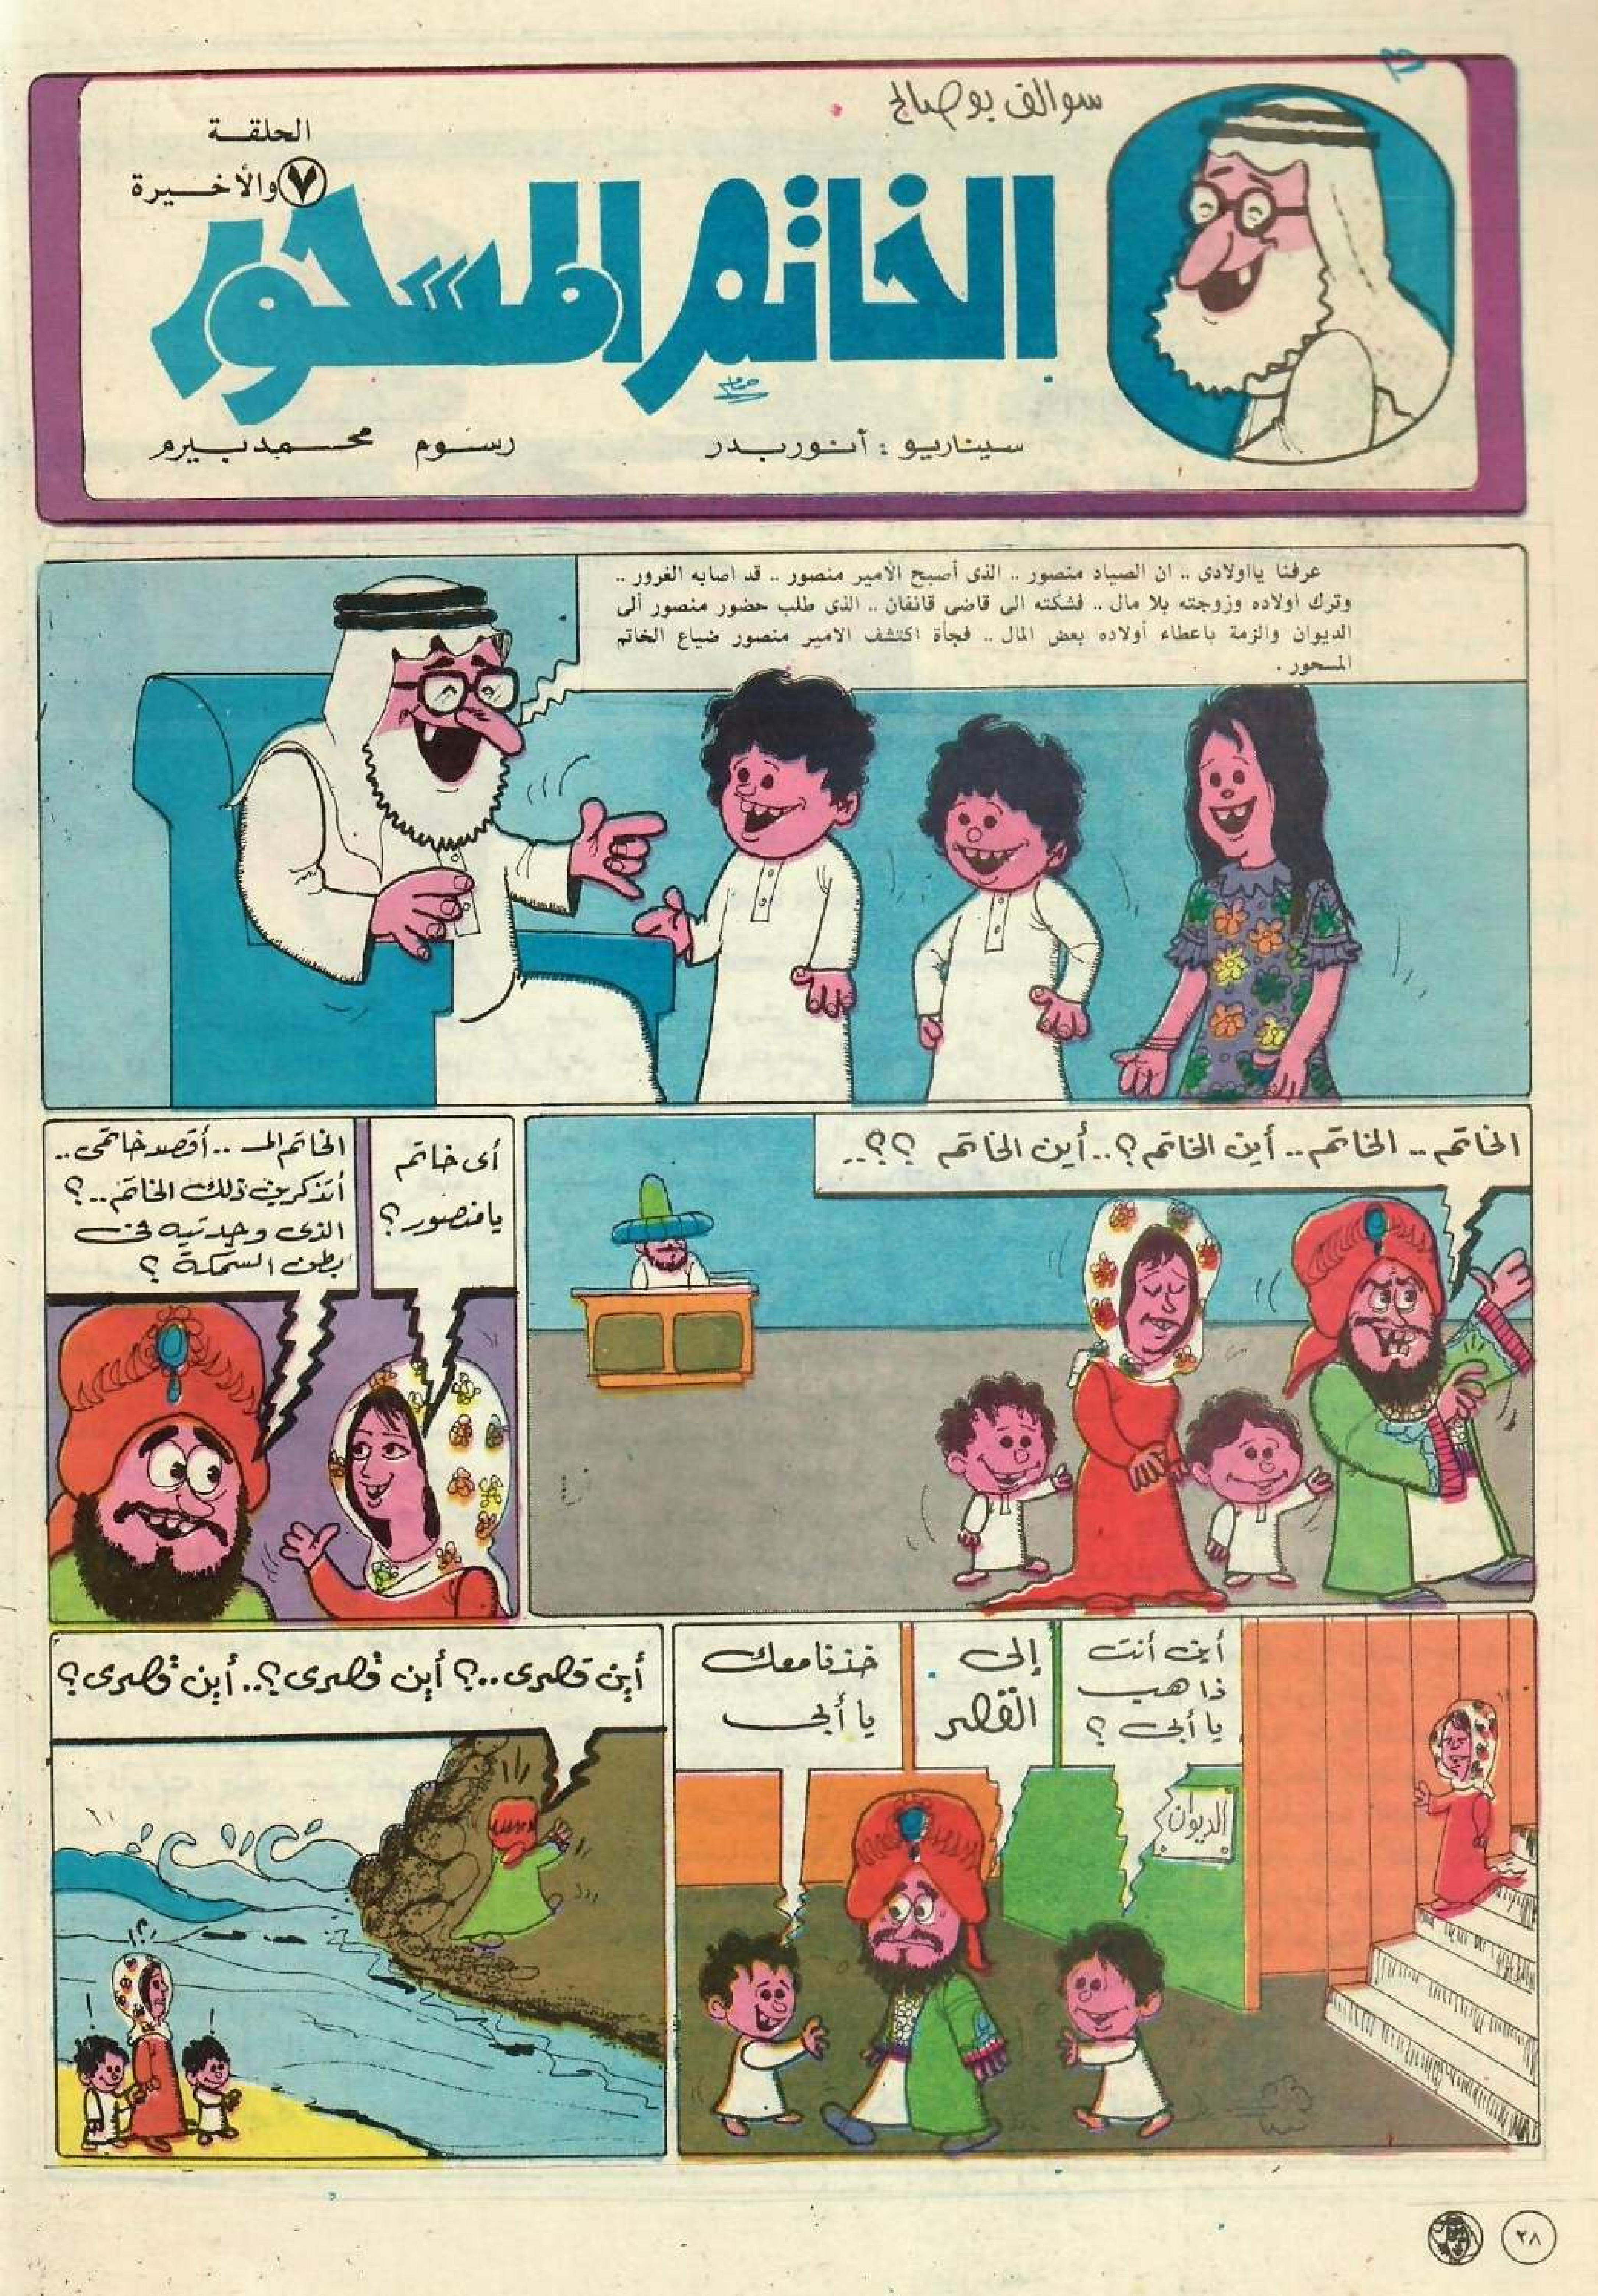 سوالف بوصالح
الحلقة
٧ والأخيرة
الخاتم المسحور
سيناريو : أنور بدر
رسوم محمد بيرم
عرفنا يااولادى .. ان الصياد منصور .. الذى أصبح الأمير منصور .. قد اصابه الغرور ..
وترك اولاده وزوجته بلا مال .. فشكته الى قاضى قانفان .. الذى طلب حضور منصور ألى
الديوان والزمة باعطاء أولاده بعض المال .. فجأة اكتشف الامير منصور ضياع الخاتم
المسحور .
الخاتم .. الخاتم .. أين الخاتم ؟.. أين الخاتم ؟؟..
أى خاتم
يامنصور ؟
الخاتم الـ .. أقصد خاتمى ..
أتذكرين ذلك الخاتم ..؟
الذى وجدتيه فى
بطن السمكة ؟
أين أنت
ذاهب
يا أبى ؟
إلى
القصر
خذنا معك
يا أبى
الديوان
أين قصرى ..؟ أين قصرى ؟.. أين قصرى ؟
٢٨